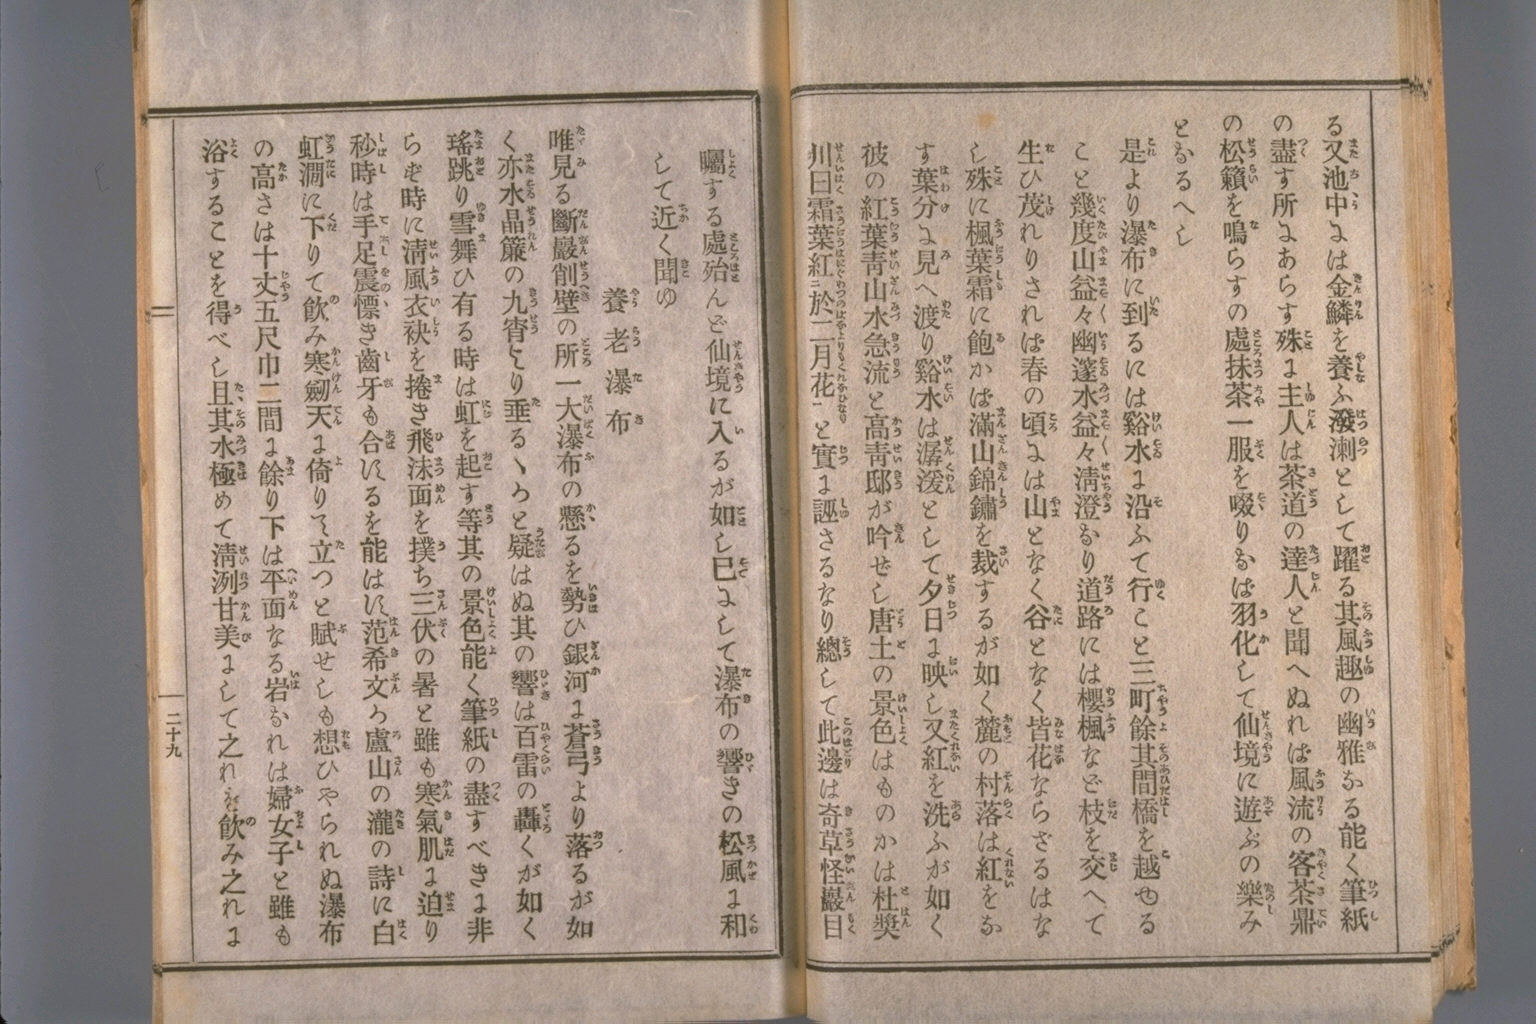 る又池中には金鱗を養ふ潑溂として躍る其風趣の幽雅なる能く筆紙
の盡す所にあらす殊に主人は茶道の達人と聞へぬれば風流の客茶鼎
の松籟を鳴らすの處抹茶一服を啜りなば羽化して仙境に遊ぶの樂み
となるへし
是より瀑布に到るには谿水に沿ふて行こと三町餘其間橋を越ゆる
こと幾度山益々幽邃水益々淸澄なり道路には櫻楓など枝を交へて
生ひ茂れりされば春の頃には山となく谷となく皆花ならざるはな
し殊に楓葉霜に飽かば滿山錦鏽を裁するが如く麓の村落は紅をな
す葉分に見へ渡り谿水は潺湲として夕日に映し又紅を洗ふが如く
彼の紅葉靑山水急流と高靑邱が吟せし唐土の景色はものかは杜樊
川曰霜葉紅ニ於二月花一と實に誣さるなり總して此邊は奇草怪巖目
囑する處殆んど仙境に入るが如し已にして瀑布の響きの松風に和
して近く聞ゆ
養老瀑布
唯見る斷巖削壁の所一大瀑布の懸るを勢ひ銀河に蒼弓より落るが如
く亦水晶簾の九霄より垂るゝかと疑はぬ其の響は百雷の轟くが如く
瑤跳り雪舞ひ有る時は虹を起す等其の景色能く筆紙の盡すべきに非
らず時に淸風衣袂を捲き飛沫面を撲ち三伏の暑と雖も寒氣肌に迫り
秒時は手足震慄き齒牙も合はるを能はば范希文か廬山の瀧の詩に白
虹澗に下りて飮み寒劒天に倚りて立つと賦せしも想ひやられぬ瀑布
の高さは十丈五尺巾二間に餘り下は平面なる岩なれは婦女子と雖も
浴することを得べし且其水極めて淸洌甘美にして之れを飮み之れに
二十九